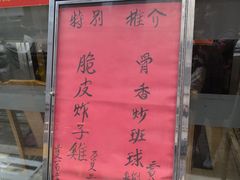 特別 推介
骨香炒斑球
脆皮炸子雞